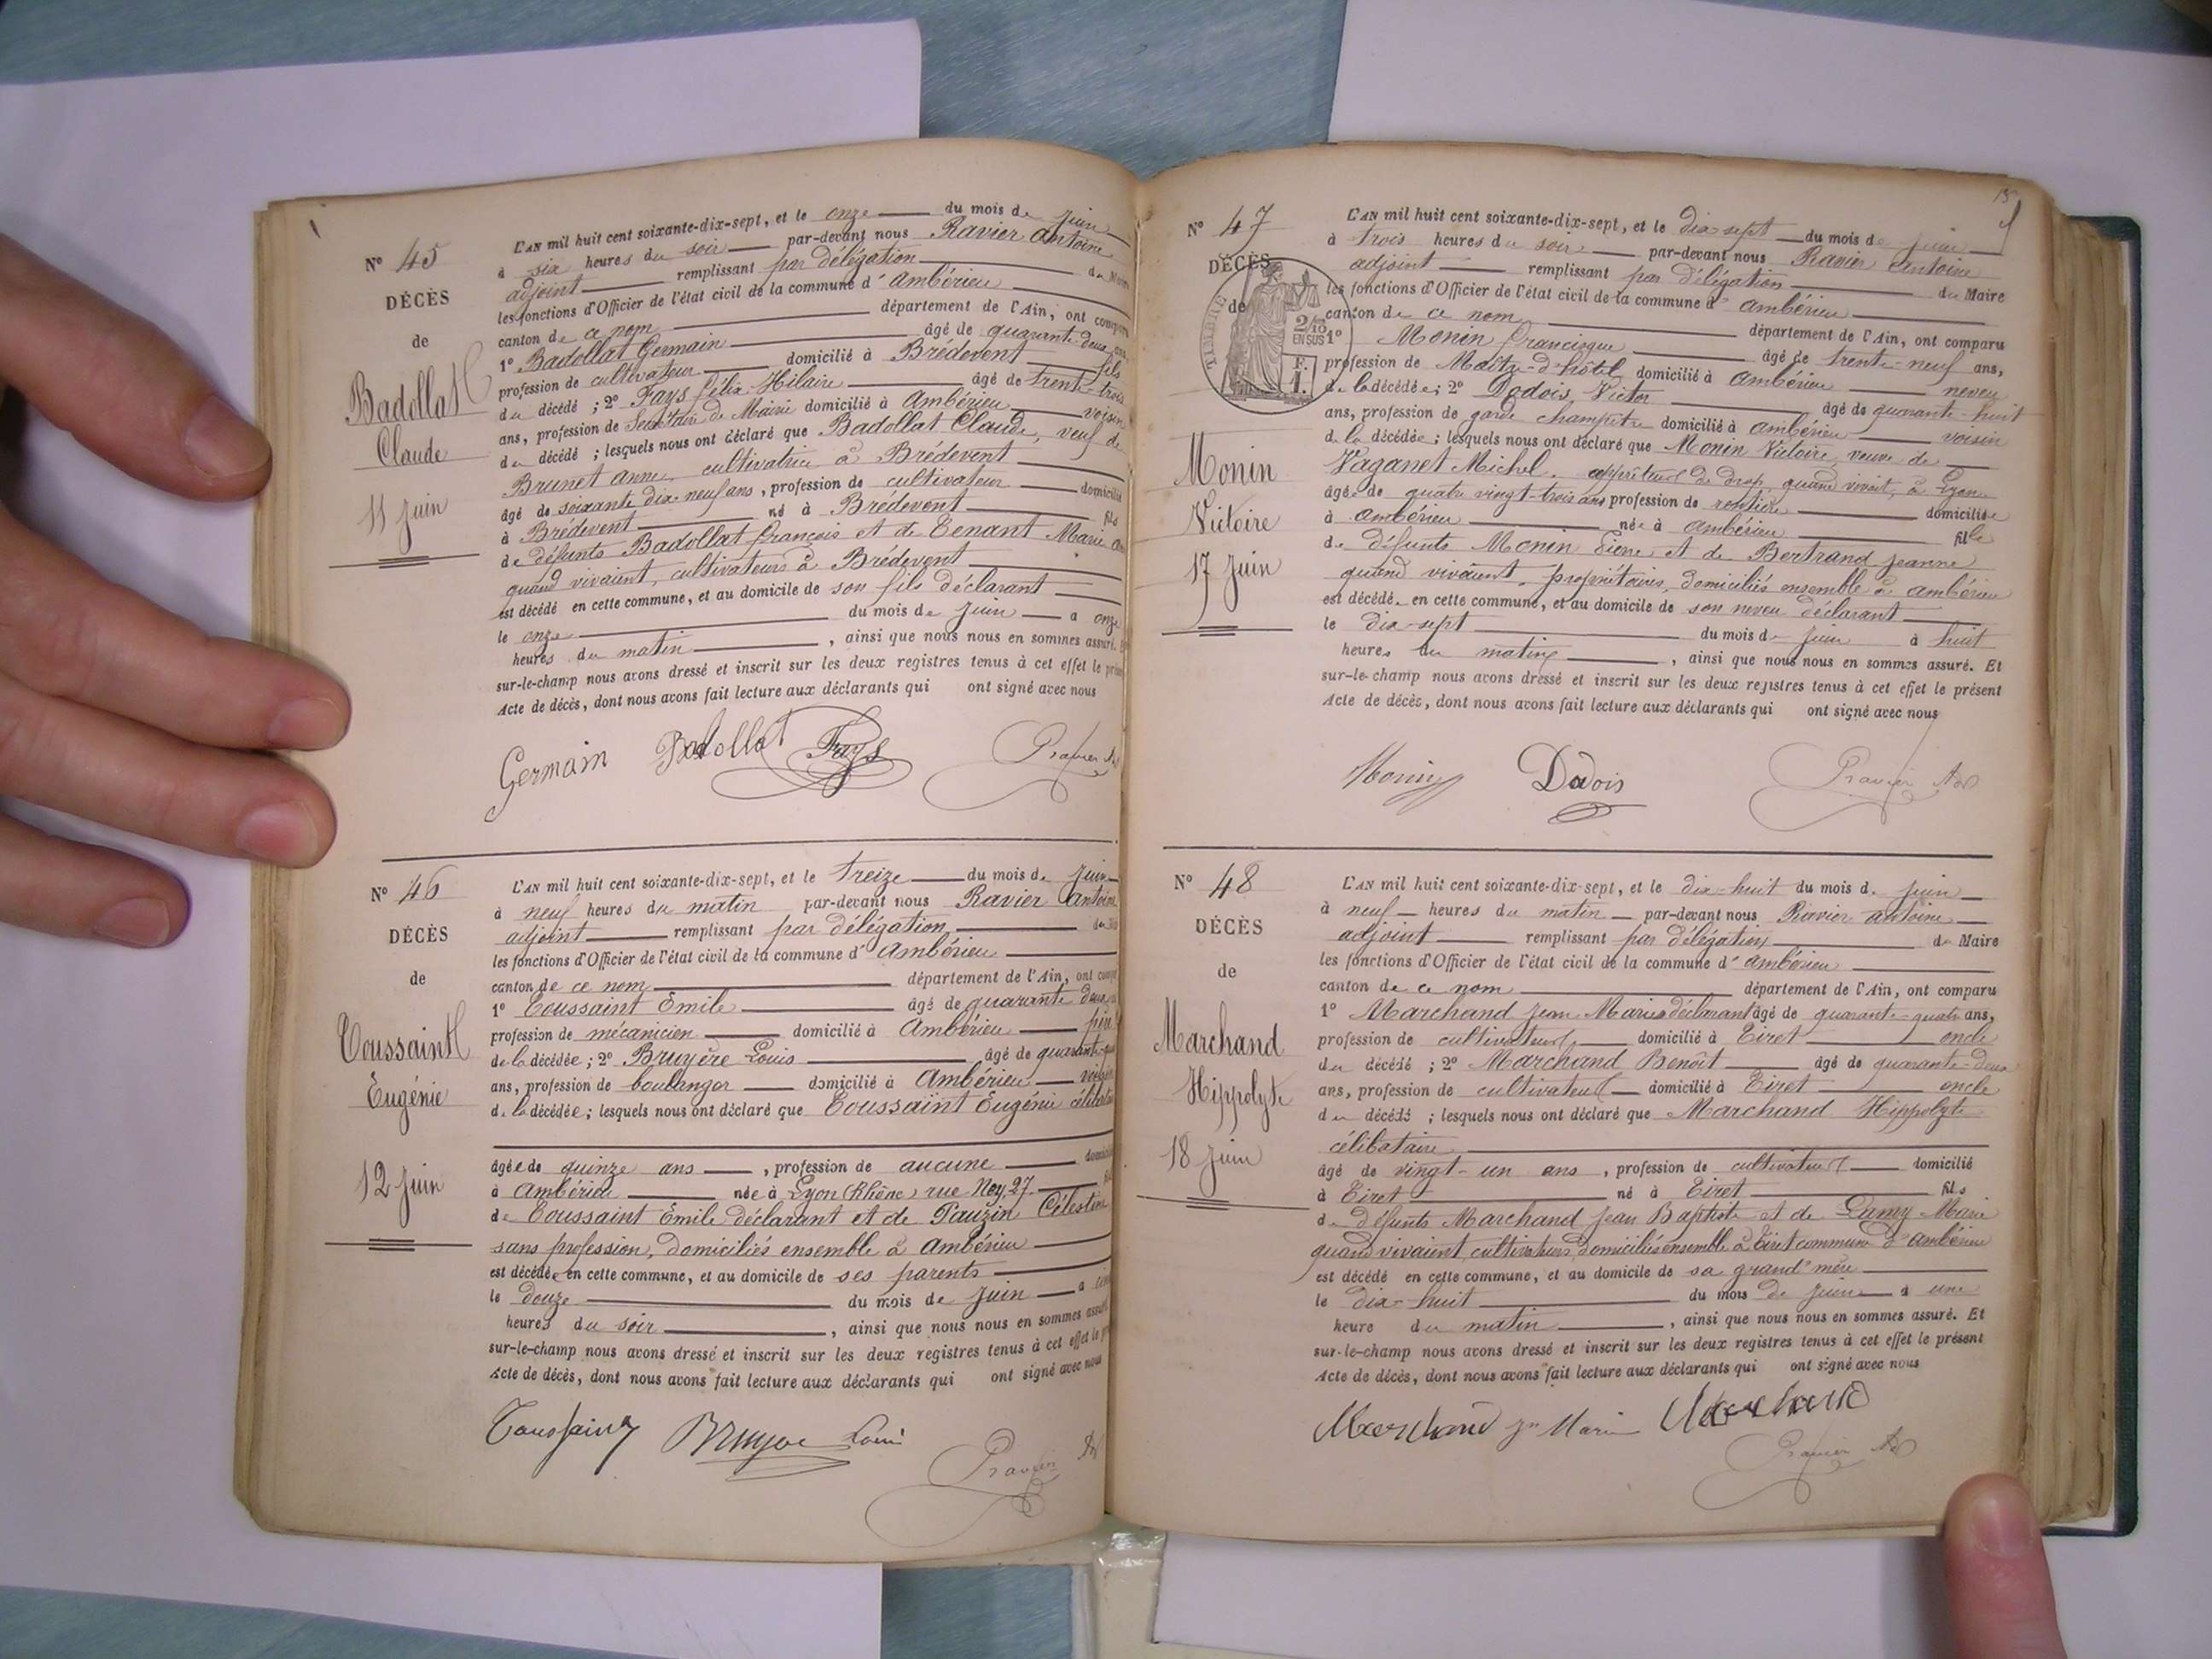 N° 45
DÉCÈS
de
Badollat
Claude
11 juin
L'AN mil huit cent soixante-dix-sept, et le onze du mois de juin
à six heures du soir par-devant nous Ravier Antoine
adjoint remplissant par délégation du Maire
les fonctions d'Officier de l'état civil de la commune d'Ambérieu
canton de ce nom département de l'Ain, ont comparu
1° Badollat Germain âgé de quarante-deux ans,
profession de cultivateur domicilié à Brédevent fils
du décédé ; 2° Fays Félix-Hilaire âgé de trente-trois
ans, profession de Secrétaire de Mairie domicilié à Ambérieu voisin
du décédé ; lesquels nous ont déclaré que Badollat Claude, veuf de
Brunet Anne, cultivatrice à Brédevent
âgé de soixante dix-neuf ans, profession de cultivateur domicilié
à Brédevent né à Brédevent fils
de défunts Badollat François et de Tenant Marie
quand vivaient, cultivateurs à Brédevent
est décédé en cette commune, et au domicile de son fils déclarant
le onze du mois de juin à onze
heures du matin, ainsi que nous nous en sommes assuré. Et
sur-le-champ nous avons dressé et inscrit sur les deux registres tenus à cet effet le présent
Acte de décès, dont nous avons fait lecture aux déclarants qui ont signé avec nous
Germain Badollat Fays Ravier
N° 46
DÉCÈS
de
Toussaint
Eugénie
12 juin
L'AN mil huit cent soixante-dix-sept, et le treize du mois de juin
à neuf heures du matin par-devant nous Ravier Antoine
adjoint remplissant par délégation du Maire
les fonctions d'Officier de l'état civil de la commune d'Ambérieu
canton de ce nom département de l'Ain, ont comparu
1° Toussaint Emile âgé de quarante deux
profession de mécanicien domicilié à Ambérieu père
de la décédée ; 2° Bruyère Louis âgé de quarante
ans, profession de boulanger domicilié à Ambérieu voisin
de la décédée ; lesquels nous ont déclaré que Toussaint Eugénie célibataire
âgée de quinze ans, profession de aucune domiciliée
à Ambérieu née à Lyon (Rhône) rue Ney, 27 fille
de Toussaint Emile déclarant et de Pauzin Célestine
sans profession, domiciliés ensemble à Ambérieu
est décédée en cette commune, et au domicile de ses parents
le douze du mois de juin à
heures du soir, ainsi que nous nous en sommes assuré
sur-le-champ nous avons dressé et inscrit sur les deux registres tenus à cet effet le
Acte de décès, dont nous avons fait lecture aux déclarants qui ont signé avec nous
Toussaint Bruyère Louis Ravier
13
N° 47
DÉCÈS
de
TIMBRE
2/10
EN SUS
F.
1.
Monin
Victoire
17 juin
L'AN mil huit cent soixante-dix-sept, et le dix sept du mois de juin
à trois heures du soir par-devant nous Ravier Antoine
adjoint remplissant par délégation du Maire
les fonctions d'Officier de l'état civil de la commune d'Ambérieu
canton de ce nom département de l'Ain, ont comparu
1° Monin Francisque âgé de trente-neuf ans,
profession de Maître-d'hôtel domicilié à Ambérieu neveu
de la décédée ; 2° Dadois Victor âgé de quarante-huit
ans, profession de garde champêtre domicilié à Ambérieu voisin
de la décédée ; lesquels nous ont déclaré que Monin Victoire, veuve de
Vaganet Michel, apprêteur de drap, quand vivait, à Lyon
âgée de quatre vingt-trois ans profession de rentière domiciliée
à Ambérieu née à Ambérieu fille
de défunts Monin Pierre et de Bertrand Jeanne
quand vivaient, propriétaires, domiciliés ensemble à Ambérieu
est décédée en cette commune, et au domicile de son neveu déclarant
le dix-sept du mois de juin à huit
heures du matin, ainsi que nous nous en sommes assuré. Et
sur-le-champ nous avons dressé et inscrit sur les deux registres tenus à cet effet le présent
Acte de décès, dont nous avons fait lecture aux déclarants qui ont signé avec nous
Monin Dadois Ravier Adt
N° 48
DÉCÈS
de
Marchand
Hippolyte
18 juin
L'AN mil huit cent soixante-dix-sept, et le dix-huit du mois de juin
à neuf heures du matin par-devant nous Ravier Antoine
adjoint remplissant par délégation du Maire
les fonctions d'Officier de l'état civil de la commune d'Ambérieu
canton de ce nom département de l'Ain, ont comparu
1° Marchand Jean Marie déclarant âgé de quarante-quatre ans,
profession de cultivateur domicilié à Tiret oncle
du décédé ; 2° Marchand Benoît âgé de quarante-deux
ans, profession de cultivateur domicilié à Tiret oncle
du décédé ; lesquels nous ont déclaré que Marchand Hippolyte
célibataire
âgé de vingt-un ans, profession de cultivateur domicilié
à Tiret né à Tiret fils
de défunts Marchand Jean Baptiste et de Lamy Marie
quand vivaient, cultivateurs, domiciliés ensemble à Tiret commune d'Ambérieu
est décédé en cette commune, et au domicile de sa grand'mère
le dix-huit du mois de juin à une
heure du matin, ainsi que nous nous en sommes assuré. Et
sur-le-champ nous avons dressé et inscrit sur les deux registres tenus à cet effet le présent
Acte de décès, dont nous avons fait lecture aux déclarants qui ont signé avec nous
Marchand Jn Marie Marchand
Ravier Adt